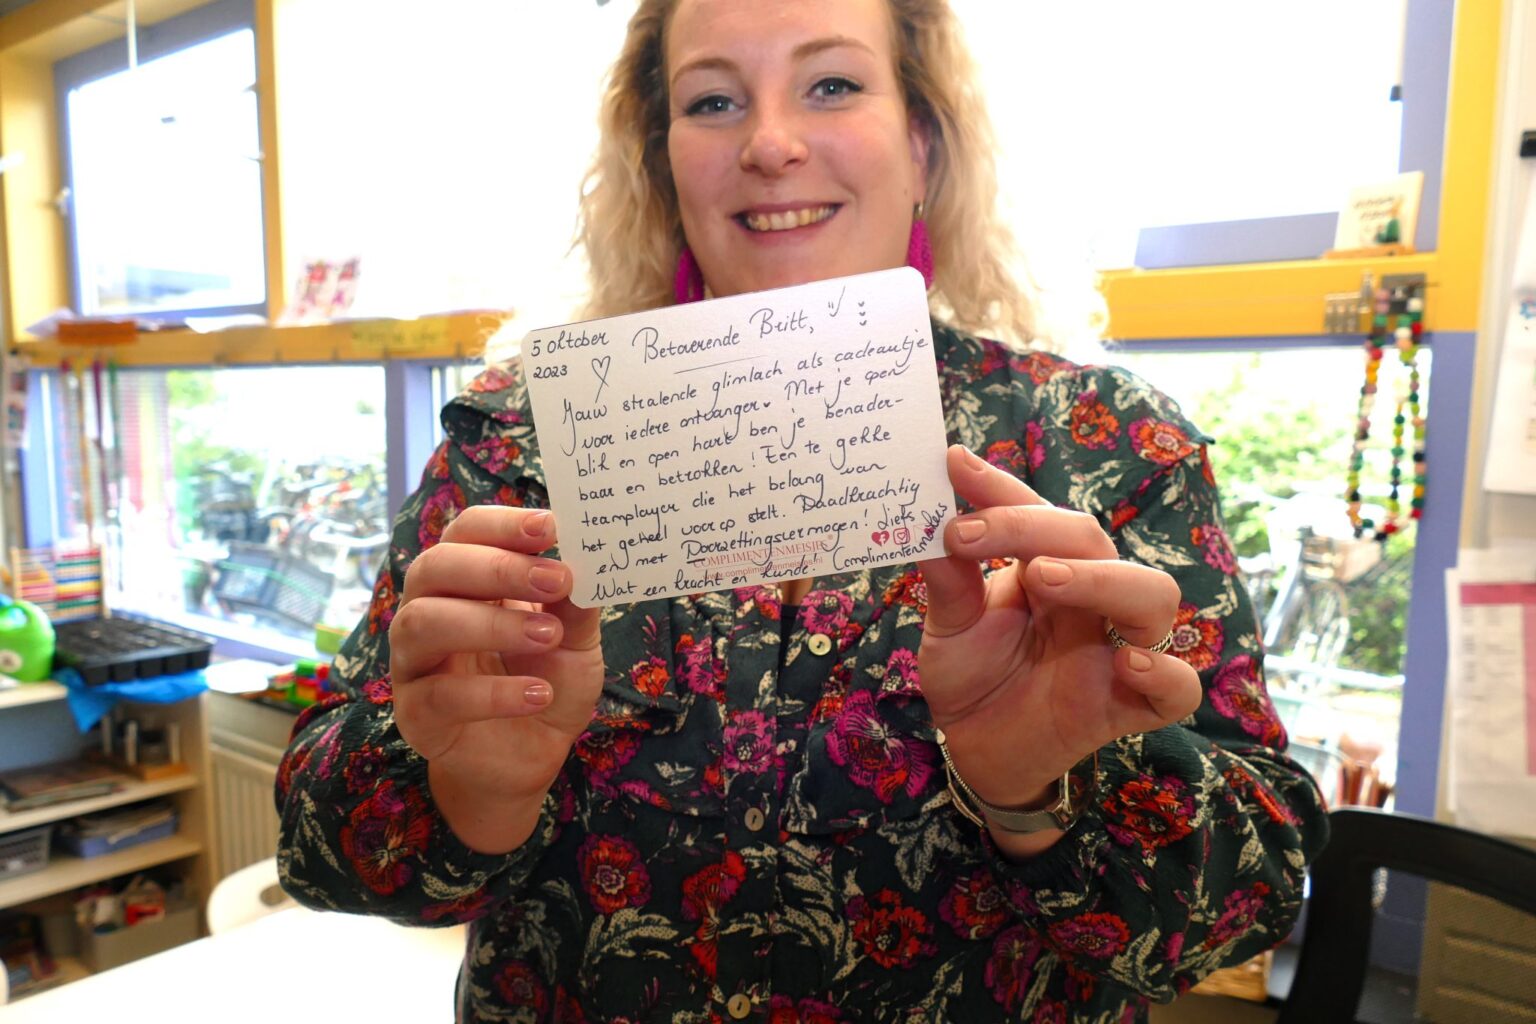 5 oktober
2023
Betoverende Britt,
Jouw stralende glimlach als cadeautje
voor iedere ontvanger. Met je open
blik en open hart ben je benader-
baar en betrokken! Een te gekke
teamplayer die het belang van
het geheel voorop stelt. Daadkrachtig
en met Doorzettingsvermogen! Liefs
COMPLIMENTENMEISJE®
www.complimentenmeisje.nl
Wat een kracht en kunde! Complimentenmakers